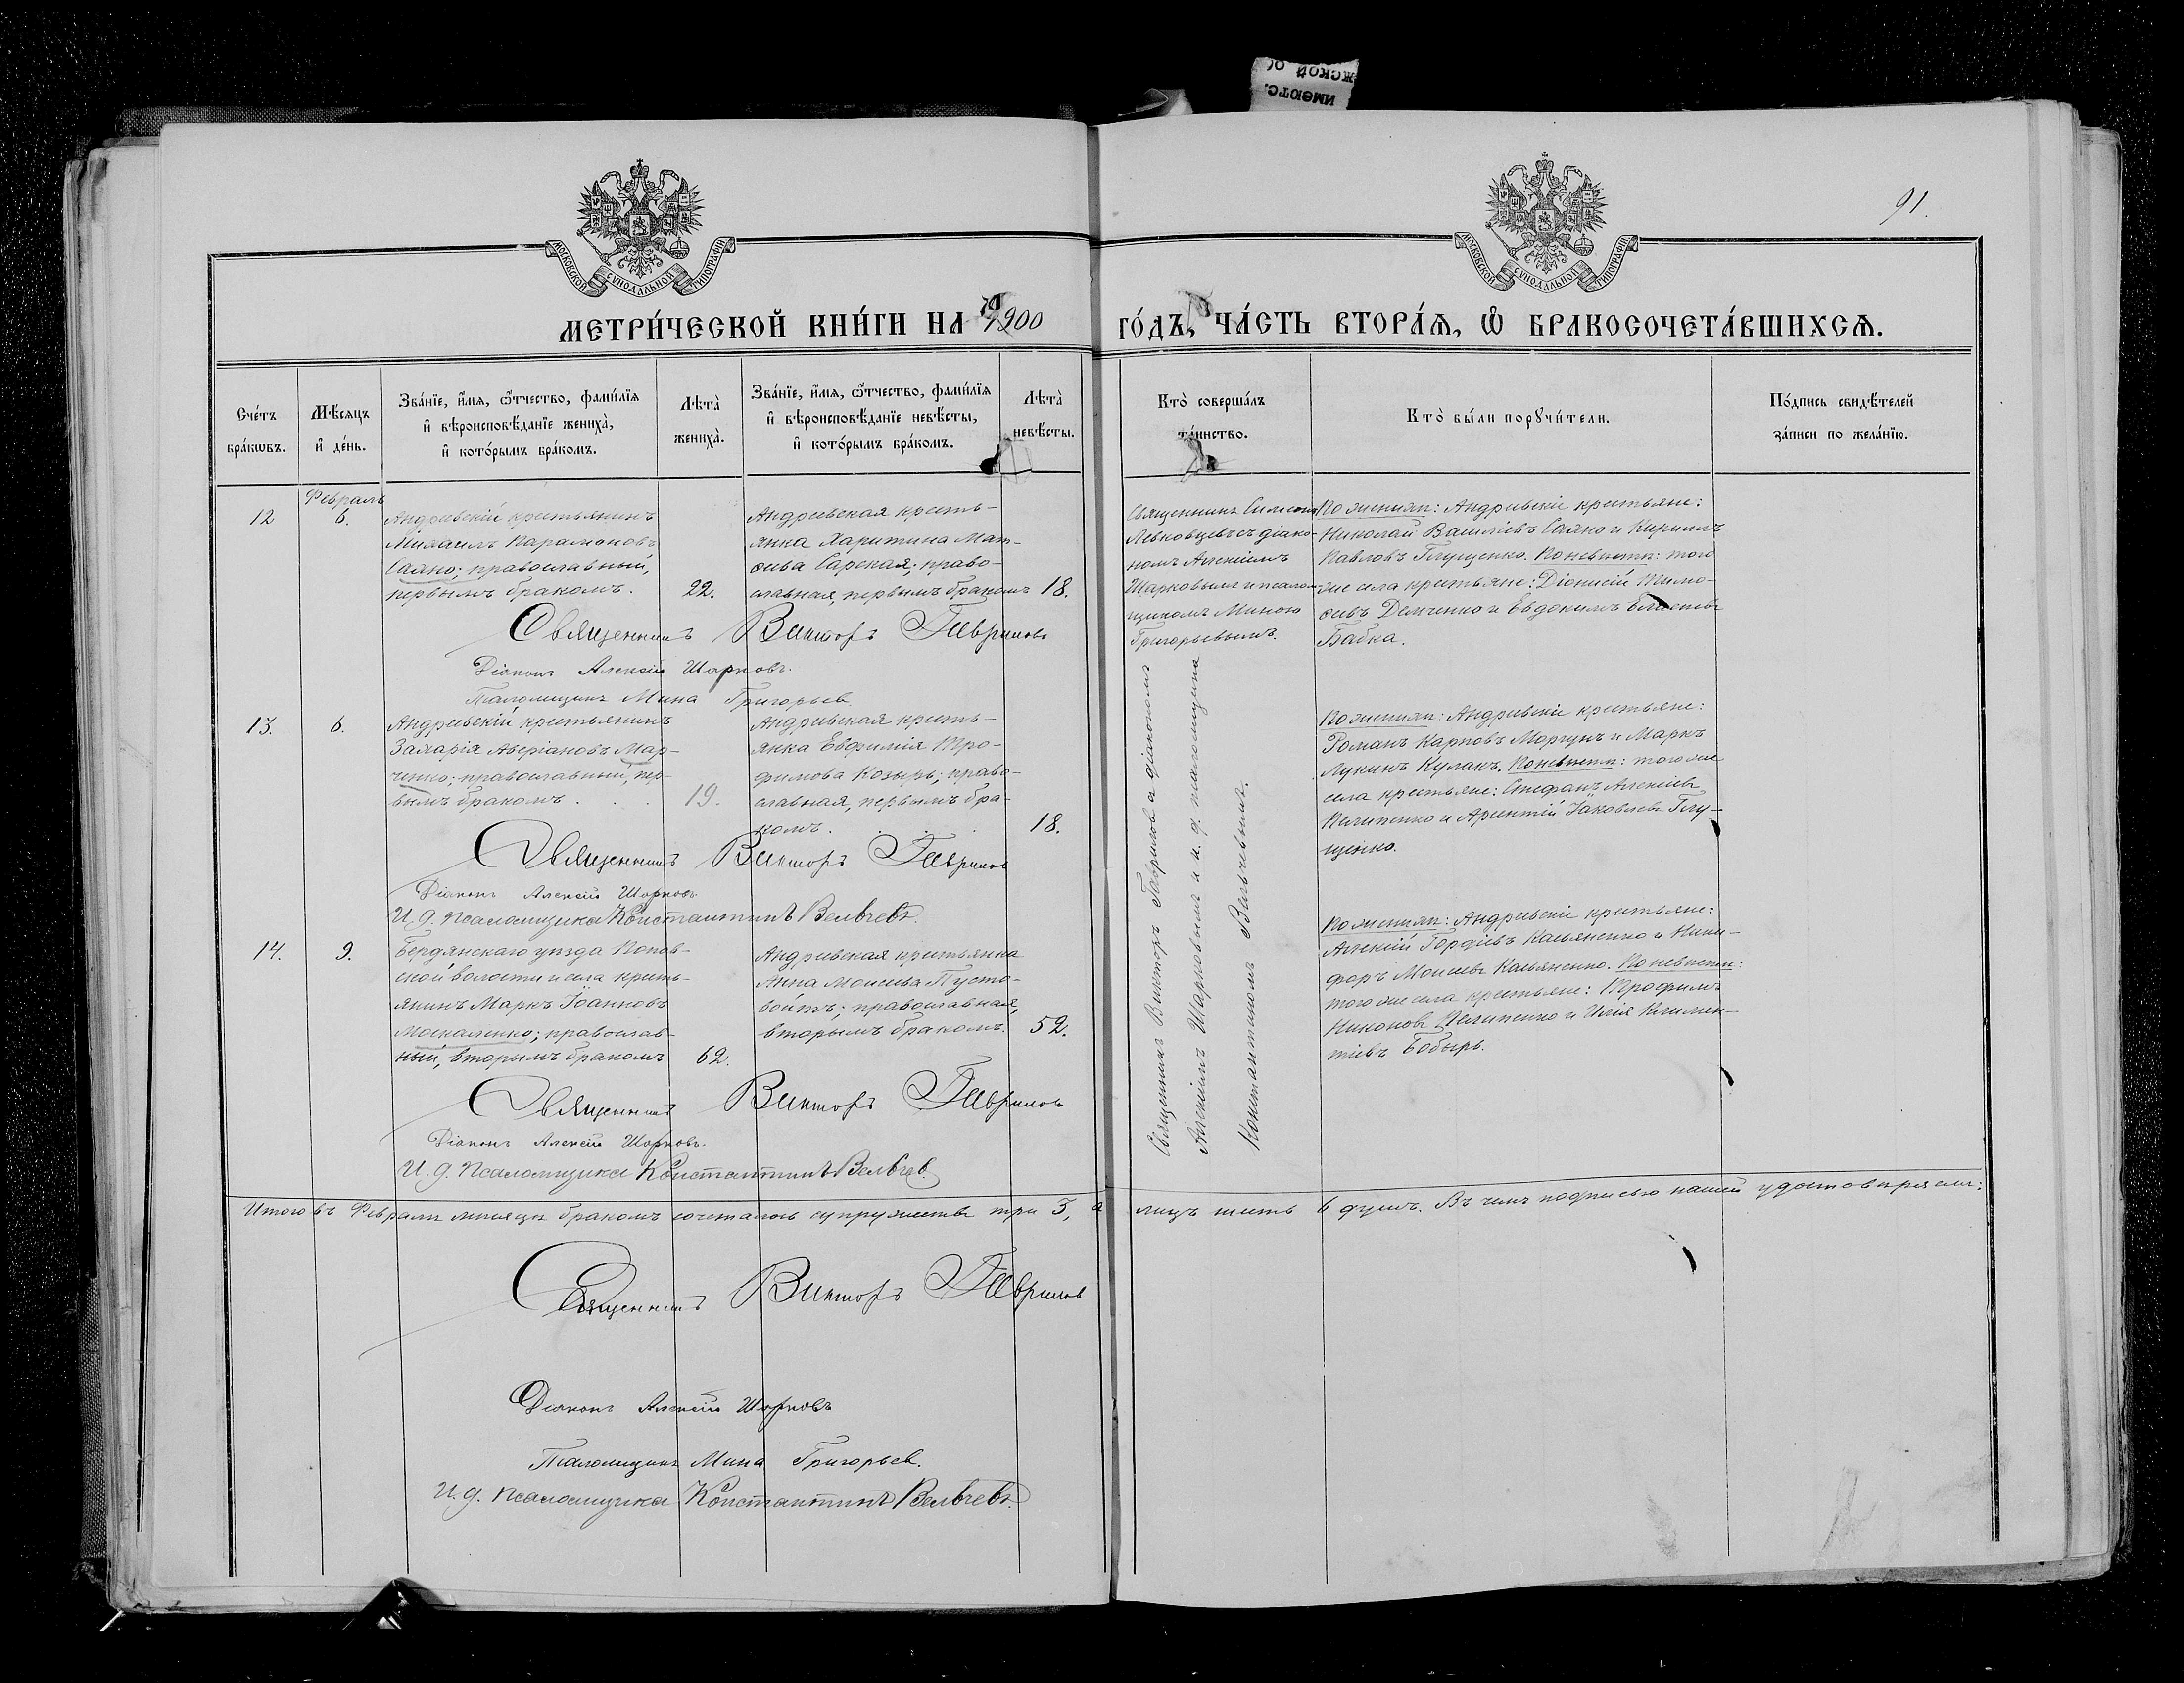 ЖСКОЙ ОС
ИМЕЮТС.
МОСКОВСКОЙ СУНОДАЛЬНОЙ ТИПОГРАФІИ
МОСКОВСКОЙ СУНОДАЛЬНОЙ ТИПОГРАФІИ
91.
МЕТРИ́ЧЕСКОЙ КНИ́ГИ НА 1900 ГО́ДЪ, ЧА́СТЬ ВТОРА́Ѧ, Ѽ БРАКОСОЧЕТА́ВШИХСѦ.
Сче́тъ
бра́кѡвъ.
Мѣ́сяцъ
и҆ де́нь.
Зва́нїе, и҆́мѧ, ѻ҆́тчество, фами́лїѧ
и҆ вѣроисповѣ́данїе жениха̀,
и҆ кото́рымъ бра́комъ.
Лѣта̀
жениха̀.
Зва́нїе, и҆́мѧ, ѻ҆́тчество, фами́лїѧ
и҆ вѣроисповѣ́данїе невѣ́сты,
и҆ кото́рымъ бра́комъ.
Лѣта̀
невѣ́сты.
Кто̀ соверша́лъ
та́инство.
Кто̀ бы́ли порꙋчи́тели.
По́дпись свидѣ́телей
за́писи по жела́нїю.
Февраль
12
6.
Андреевскій крестьянинъ
Михаилъ Парамоновъ
Саяно; православный,
первымъ бракомъ.
22.
Андреевская кресть-
янка Харитина Мат-
ѳеева Сарская; право-
славная, первымъ бракомъ
18.
Священникъ Симеонъ
Левковцевъ съ діако-
номъ Алексіемъ
Шарковымъ и псалом-
щикомъ Миною
Григорьевымъ.
По женихѣ: Андреевскіе крестьяне:
Николай Василіевъ Саяно и Кириллъ
Павловъ Глущенко. По невѣстѣ: того
же села крестьяне: Діонисій Тимо-
ѳеевъ Демченко и Евдокимъ
Бабка.
Священникъ Викторъ Гавриловъ
Діаконъ Алексій Шарковъ.
Псаломщикъ Мина Григорьев.
13.
6.
Андреевскій крестьянинъ
Захарія Аверіановъ Мар-
ченко; православный, пер-
вымъ бракомъ.
19.
Андреевская кресть-
янка Евфимія Тро-
фимова Козырь; право-
славная, первымъ бра-
комъ.
18.
По женихѣ: Андреевскіе крестьяне:
Романъ Карповъ Моргунъ и Маркъ
Лукинъ Кулакъ. По невѣстѣ: того же
села крестьяне: Стефанъ Алексіевъ
Пилипенко и Арсентій Іаковлевъ Глу-
щенко.
Священникъ Викторъ Гаврилов
Діаконъ Алексій Шарковъ
И. д. псаломщика Константинъ Вельчевъ.
14.
9.
Бердянскаго уѣзда Попов-
ской волости и села кресть-
янинъ Маркъ Іоанновъ
Москаленко; православ-
ный, вторымъ бракомъ
62.
Андреевская крестьянка
Анна Моисеева Пусто-
войтъ; православная,
вторымъ бракомъ.
52.
Священникъ Викторъ Гаврилов съ діакономъ
Алексіемъ Шарковымъ и и. д. псаломщика
Константиномъ Вельчевымъ.
По женихѣ: Андреевскіе крестьяне:
Алексій Гордіевъ Касьяненко и Ники-
форъ Моисеевъ Касьяненко. По невѣстѣ:
того же села крестьяне: Трофимъ
Никоновъ Пилипенко и Илія Климен-
тіевъ Бобырь.
Священникъ Викторъ Гаврилов
Діаконъ Алексій Шарковъ.
И. д. псаломщика Константинъ Вельчев.
Итого въ Февралѣ мѣсяцѣ бракомъ сочеталось супружествъ три 3, а лицъ шесть 6 душъ. Въ чемъ подписью нашей удостовѣряемъ:
Священникъ Викторъ Гаврилов
Діаконъ Алексій Шарковъ
Псаломщикъ Мина Григорьев.
И. д. псаломщика Константинъ Вельчевъ.